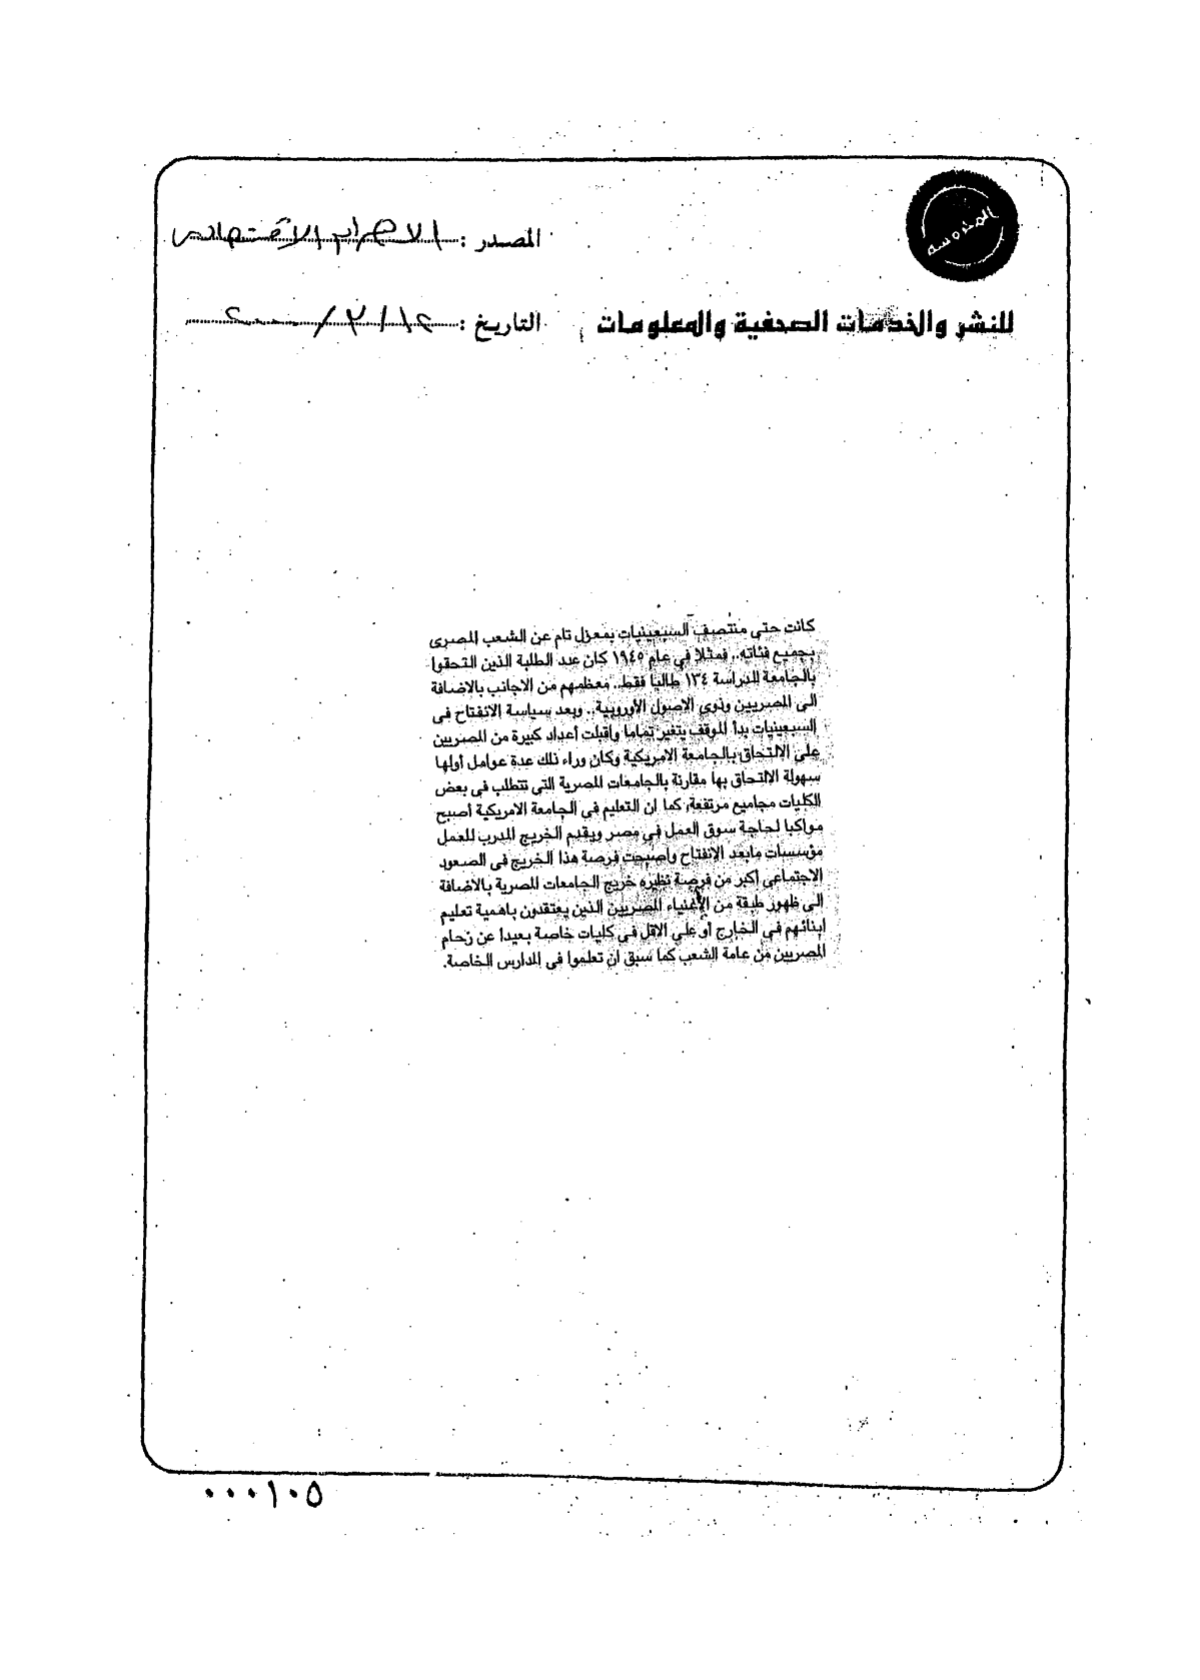 المحروسة
المصدر : الاهرام الاقتصادى
للنشر والخدمات الصحفية والمعلومات
التاريخ : ٢٠٠٠/٢/١٢
كانت حتى منتصف السبعينيات بمعزل تام عن الشعب المصرى
بجميع فئاته.. فمثلا في عام ١٩٤٥ كان عدد الطلبة الذين التحقوا
بالجامعة للدراسة ١٣٤ طالبا فقط.. معظمهم من الاجانب بالاضافة
الى المصريين وذوى الاصول الأوروبية.. وبعد سياسة الانفتاح فى
السبعينيات بدأ الموقف يتغير تماما وأقبلت أعداد كبيرة من المصريين
على الالتحاق بالجامعة الامريكية وكان وراء ذلك عدة عوامل أولها
سهولة الالتحاق بها مقارنة بالجامعات المصرية التى تتطلب فى بعض
الكليات مجاميع مرتفعة، كما ان التعليم فى الجامعة الامريكية أصبح
مواكبا لحاجة سوق العمل في مصر ويقدم الخريج المدرب للعمل
مؤسسات مابعد الانفتاح وأصبحت فرصة هذا الخريج فى الصعود
الاجتماعى أكبر من فرصة نظيره خريج الجامعات المصرية بالاضافة
الى ظهور طبقة من الأغنياء المصريين الذين يعتقدون باهمية تعليم
ابنائهم في الخارج أو على الاقل فى كليات خاصة بعيدا عن زحام
المصريين من عامة الشعب كما سبق ان تعلموا فى المدارس الخاصة.
٠٠٠١٠٥